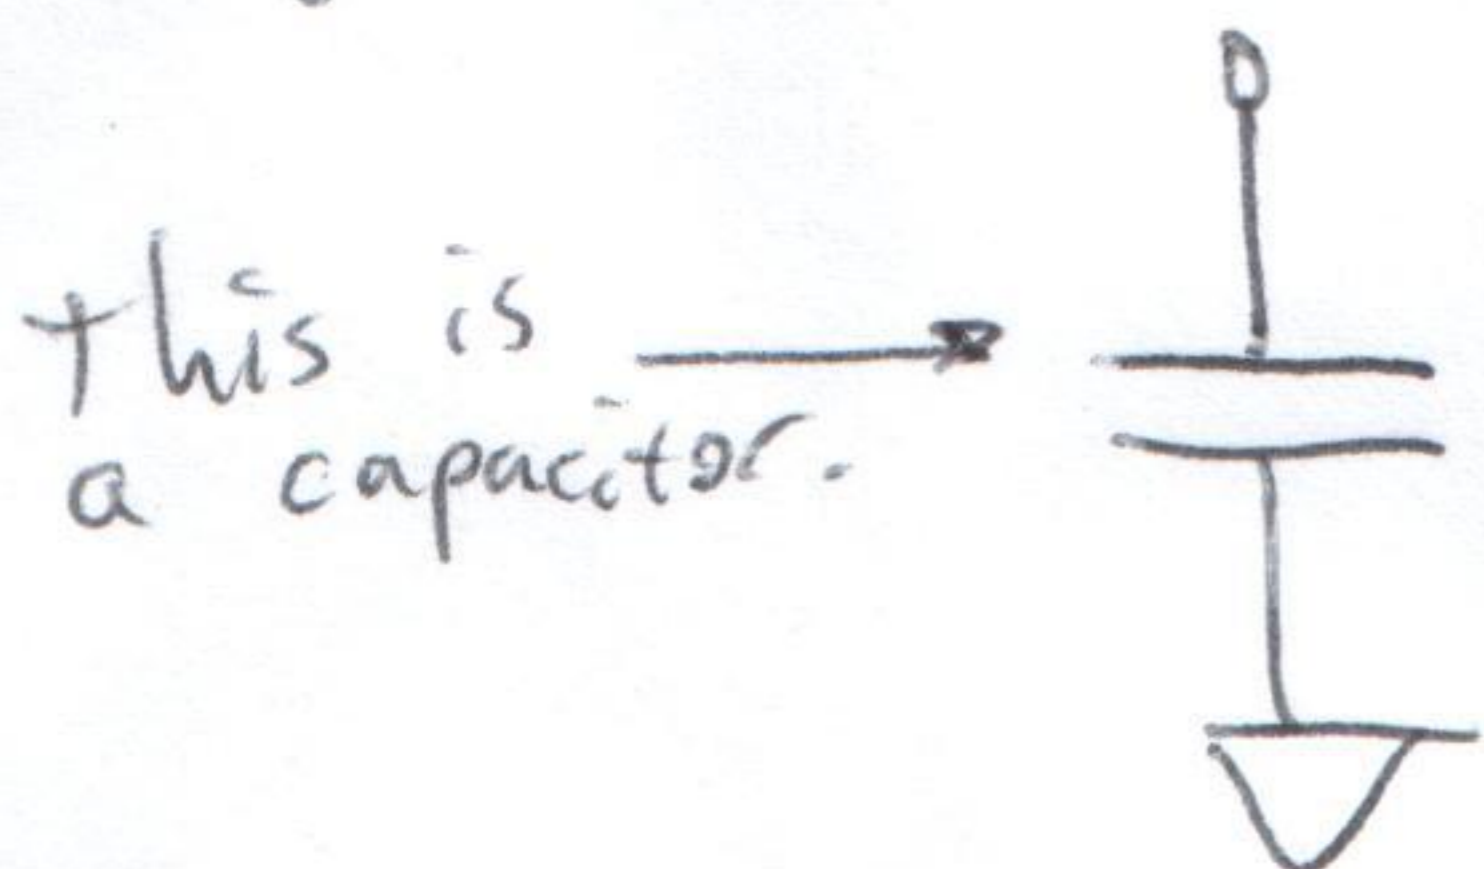 This is
a capacitor.